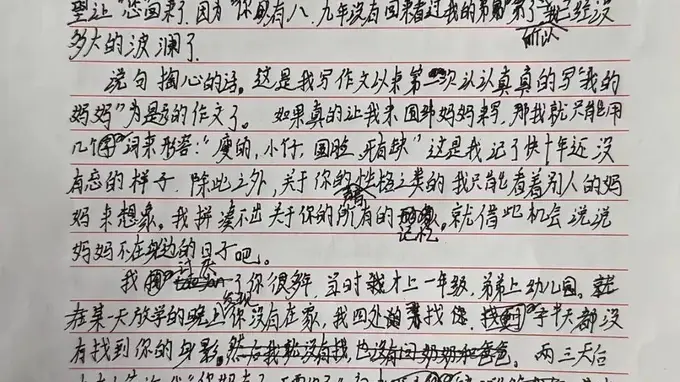 让“您回来了,因为“你明有八、九年没有回来看过我的弟弟了,所以我已经没
多大的波澜了.
说句掏心的话。这是我写作文以来第一次认认真真的写“我的
妈妈”为是记的作文了。如果真的让我来围绕妈妈来写.那我就只能用
几个词来形容:“瘦的,小仔,圆脸,牙有缺”这是我记了快十年还没
有忘的样子.除此之外,关于你的性格之类的我只能看着别人的妈
妈来想象。我拼凑不出关于你的所有的记忆。就借此机会说说
妈妈不在身边的日子吧。
我讨厌了你很多年.当时我才上一年级,弟弟上幼儿园。就
在某一天放学的晚上发现你没有在家,我四处的寻找你.找了半天都没
有找到你的身影。然后我就没有找也没有问奶奶和爸爸。两三天后